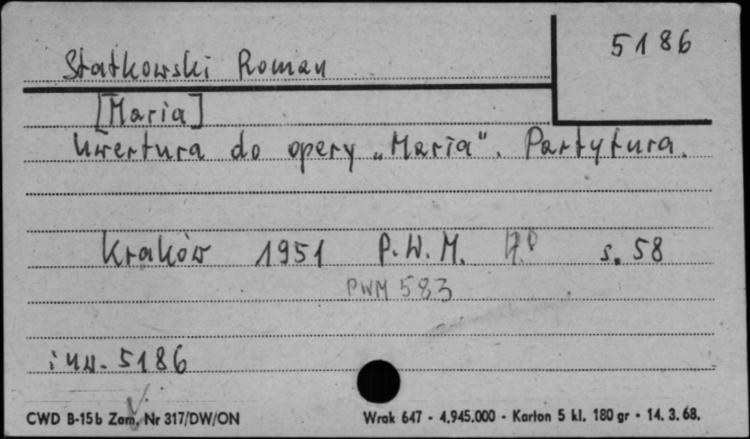 5186
Statkowski Roman
[Maria]
Uwertura do opery „Maria". Partytura.
Kraków 1951 P.W.M. s. 58
PWM 583
inw. 5186
CWD B-15b Zam. Nr 317/DW/ON Wrak 647 - 4.945.000 - Karton 5 kl. 180 gr - 14. 3. 68.